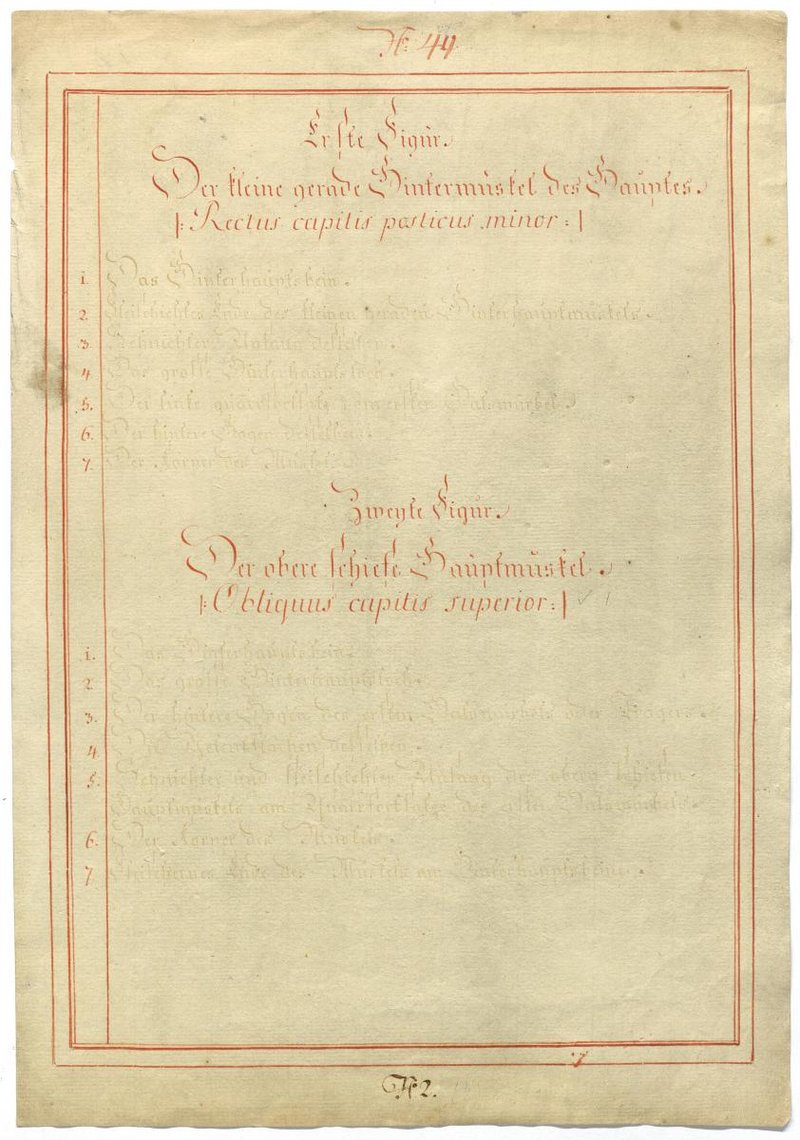 N: 44
Erste Figur.
Der kleine gerade Hintermuskel des Hauptes.
|: Rectus capitis posticus minor :|
1. Das Hinterhauptsbein.
2. Fleischichtes Ende des kleinen geraden Hinterhauptmuskels.
3. Sehnichter Anfang desselben.
4. Das grosse Hinterhauptsloch.
5. Der linke querfortsatz vom ersten Halswürbel.
6. Der hintere Bogen desselben.
7. Der Körper des Muskels.
Zweyte Figur.
Der obere schiefe Hauptmuskel.
|: Obliquus capitis superior :|
1. Das Hinterhauptsbein.
2. Das grosse Hinterhauptsloch.
3. Der hintere Bogen des ersten Halswürbels oder Trägers.
4. Die Gelenkflächen desselben.
5. Sehnichter und fleischichter Anfang des obern schiefen
Hauptmuskels am Querfortsatze des ersten Halswürbels.
6. Der Körper des Muskels.
7 Fleischernes Ende des Muskels am Hinterhauptsbeine.
N: 2.